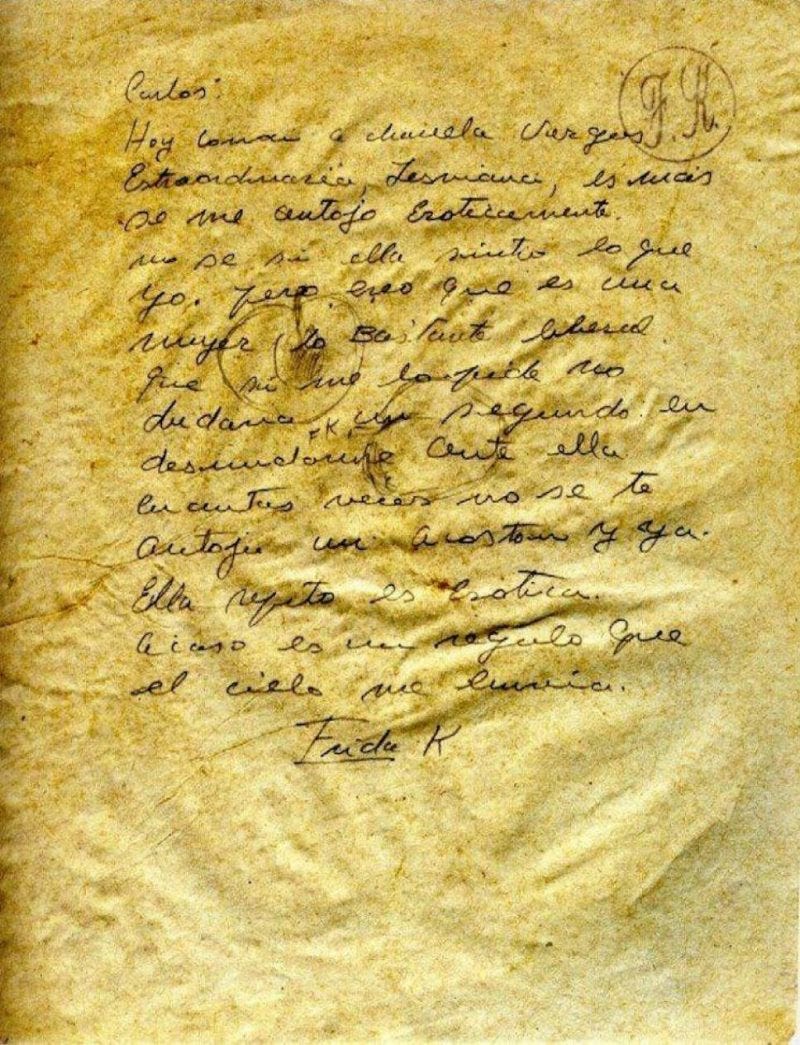 Carlos:
F. K.
Hoy conoci a chavela Vargas.
Extraordinaria, Lesviana, es más
se me antojo Eroticamente.
no se si ella sintio lo que
yo. pero creo que es una
mujer lo Bastante liberal.
que si me lo pide no
dudaria un segundo en
F.K.
desnudarme ante ella
cuantas veces no se te
antoja un acoston y ya.
Ella repito es Erotica.
acaso es un regalo que
el cielo me envia.
Frida K